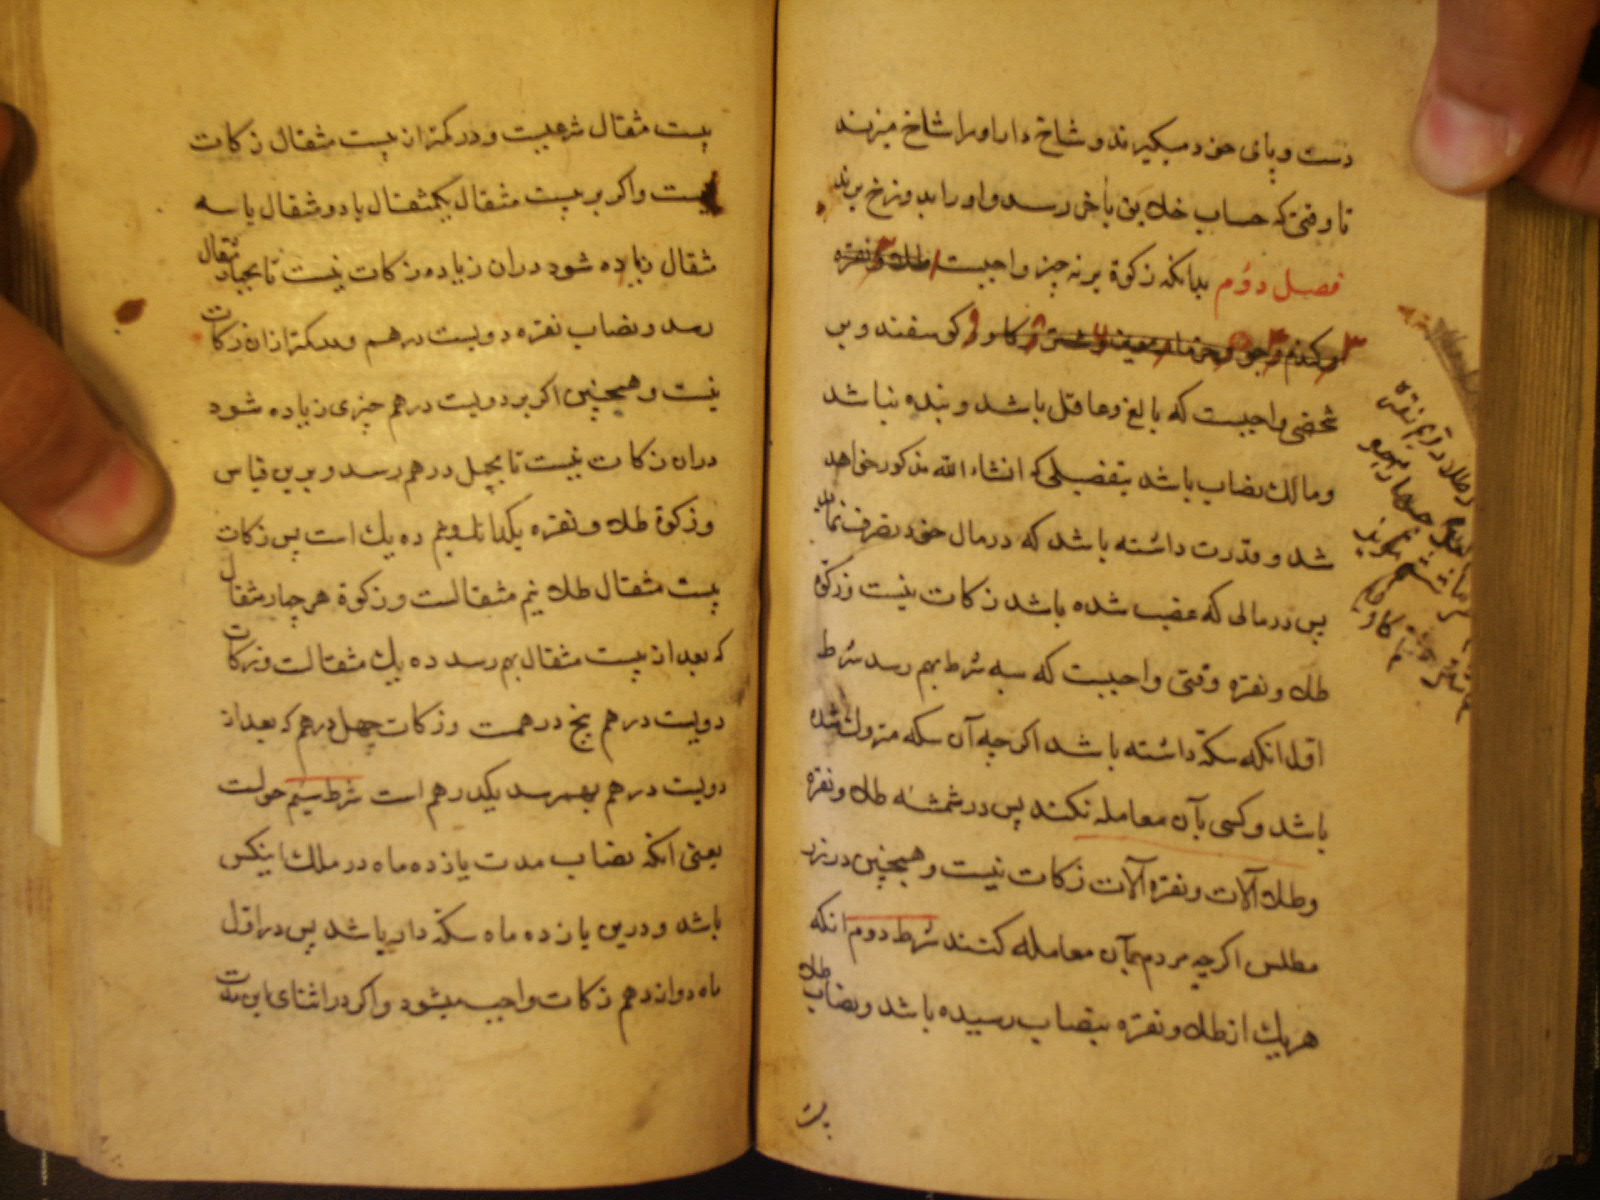 دست و پای خود میکیرند و شاخ دار او را شاخ میزند
تا وقتی که حساب خلایق باخر رسد و او را بدوزخ برند
فصل دوم بدانکه زکوة بر نه چیز واجبست طلا و نقره
و کندم و جو و خرما و مویز و شتر و کاو و کوسفند و بر
شخصی واجبست که بالغ و عاقل باشد و بنده نباشد
و مالک نصاب باشد بتفصیلی که انشاء الله مذکور خواهد
شد و قدرت داشته باشد که در مال خود تصرف نماید
پس در مالی که غصب شده باشد زکات نیست و زکوة
طلا و نقره وقتی واجبست که سه شرط بهم رسد شرط
اول انکه سکه داشته باشد اکرچه آن سکه متروک شده
باشد و کسی بآن معامله نکند پس در شمشه طلا و نقره
و طلا آلات و نقره آلات زکات نیست و همچنین در زر
مطلس اکرچه مردم بآن معامله کنند شرط دوم انکه
هریک از طلا و نقره بنصاب رسیده باشد و نصاب طلا
بیست
طلا دویم نقره
کاو
بیست مثقال شرعیست و در کمتر از بیست مثقال زکات
نیست و اکر بر بیست مثقال یکمثقال یا دو مثقال یا سه
مثقال زیاده شود دران زیاده زکات نیست تا بچهار مثقال
رسد و نصاب نقره دویست درهم و در کمتر ازان زکات
نیست و همچنین اکر بر دویست درهم چیزی زیاده شود
دران زکات نیست تا بچهل درهم رسد و برین قیاس
و زکوة طلا و نقره یکدانک و نیم ده یک است پس زکات
بیست مثقال طلا نیم مثقالست و زکوة هر چهار مثقال
که بعد از بیست مثقال بهم رسد ده یک مثقالست و زکات
دویست درهم پنج درهمست و زکات چهل درهم که بعد از
دویست درهم بهمرسد یکدرهم است شرط سیم حولست
یعنی انکه نصاب مدت یازده ماه در ملک اینکس
باشد و درین یازده ماه سکه دار باشد پس در اول
ماه دوازدهم زکات واجب میشود و اکر در اثنای این مدت